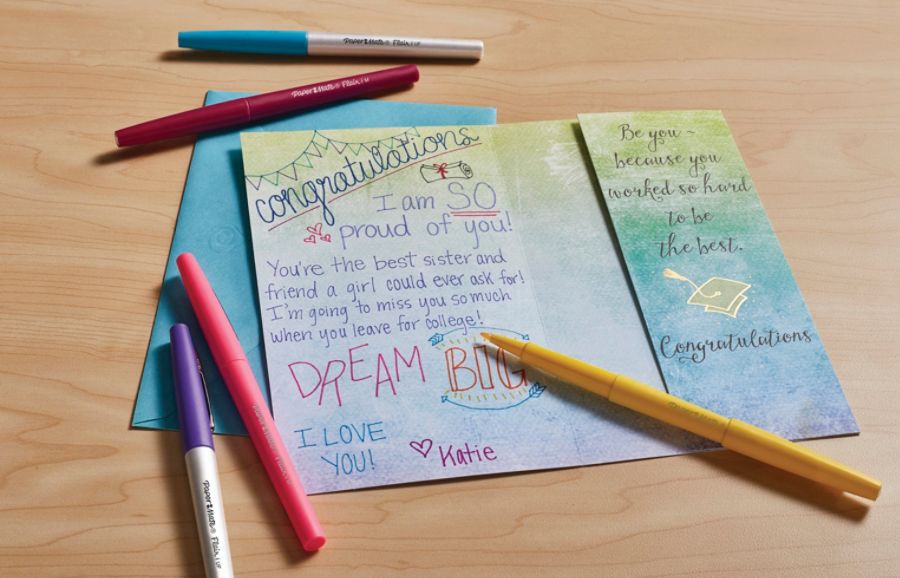 Paper Mate® Flair. UF
Paper Mate® Flair. M
congratulations
I am SO
proud of you!
You're the best sister and
friend a girl could ever ask for!
I'm going to miss you so much
when you leave for college!
DREAM BIG
I LOVE
YOU!
Katie
Be you ~
because you
worked so hard
to be
the best.
Congratulations
Paper Mate® Flair. UF